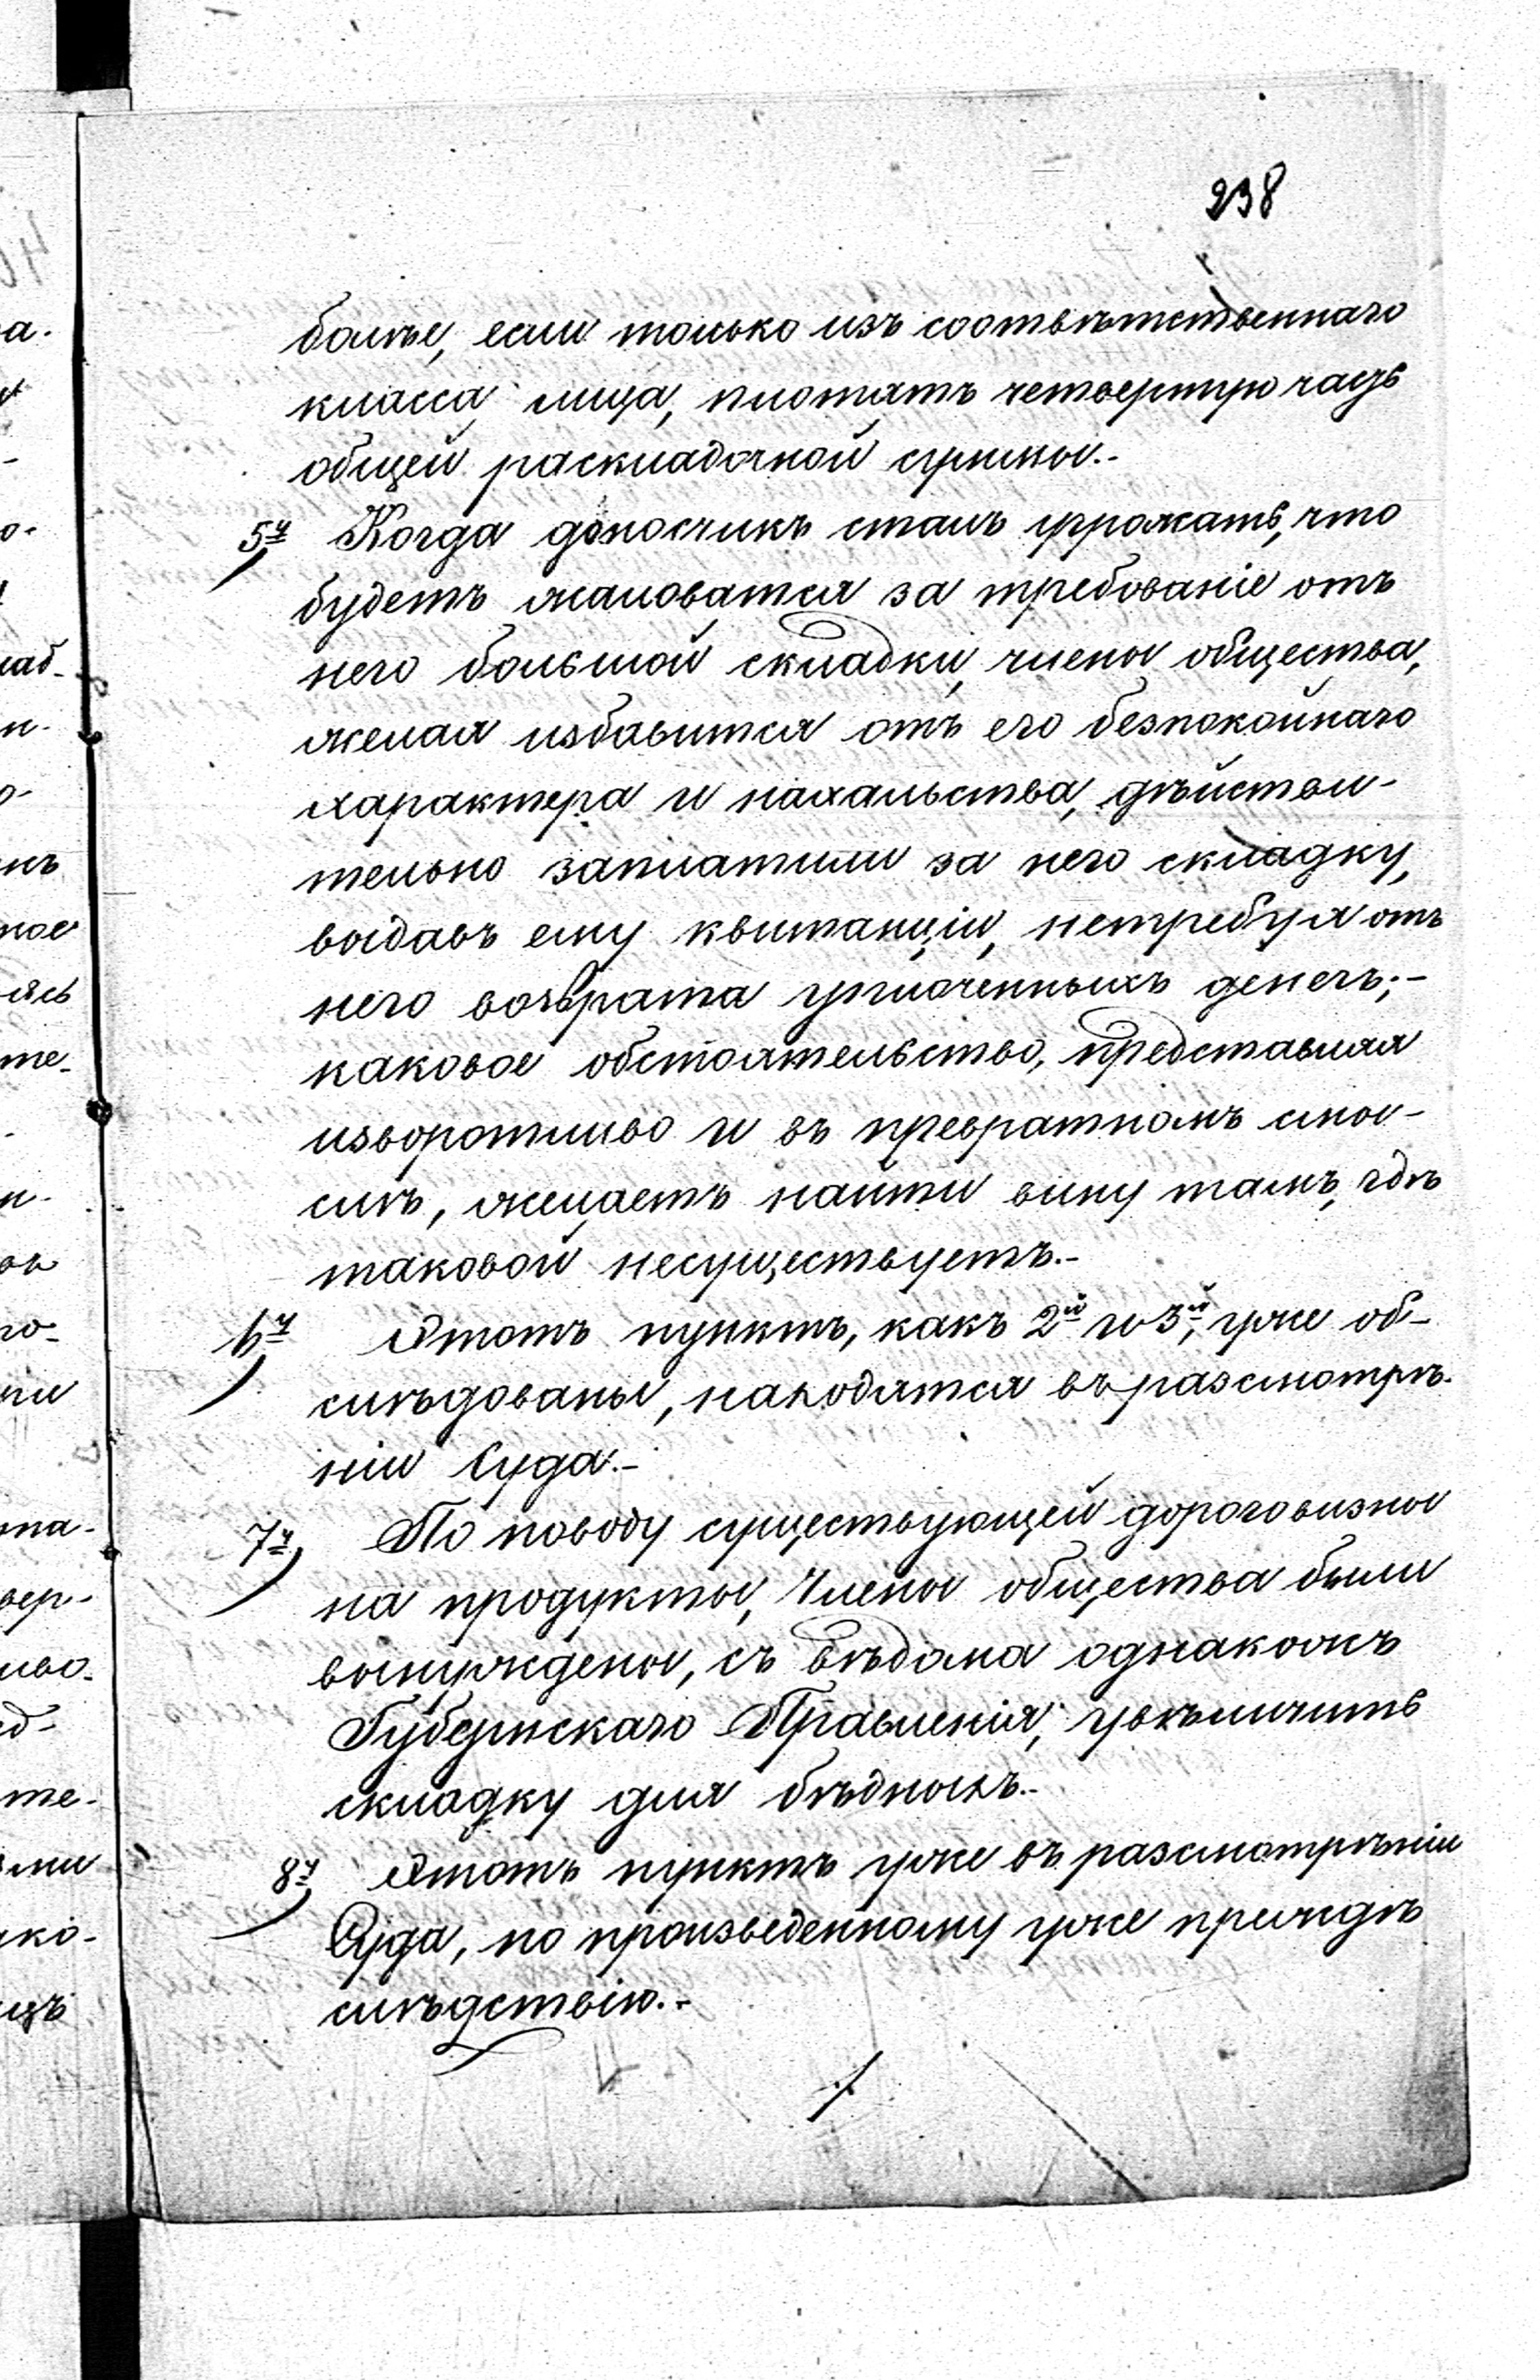 238
болѣе, если только изъ соотвѣтственнаго
класса лица, плотятъ четвертую часть
общей раскладочной суммы.-
5й Когда доносчикъ сталъ угрожать, что
будетъ жаловатся за требованіе отъ
него большой складки, члены общества,
желая избавится отъ его безпокойнаго
характера и нахальства, дѣйстви-
тельно заплатили за него складку,
выдавъ ему квитанціи, нетребуя отъ
него возврата уплоченныхъ денегъ;-
каковое обстоятельство, представляя
изворотливо и въ превратномъ смы-
слѣ, желаетъ найти вину тамъ, гдѣ
таковой несуществуетъ.-
6й Этотъ пунктъ, какъ 2й и 3й, уже об-
слѣдованы, находятся въ разсмотрѣ-
ніи Суда.-
7й По поводу существующей дороговизны
на продукты, Члены общества были
вынуждены, съ вѣдома однакожъ
Губернскаго Правленія, увѣличить
складку для бѣдныхъ.-
8й Этотъ пунктъ уже въ разсмотрѣніи
Суда, по произведенному уже прежде
слѣдствію.-